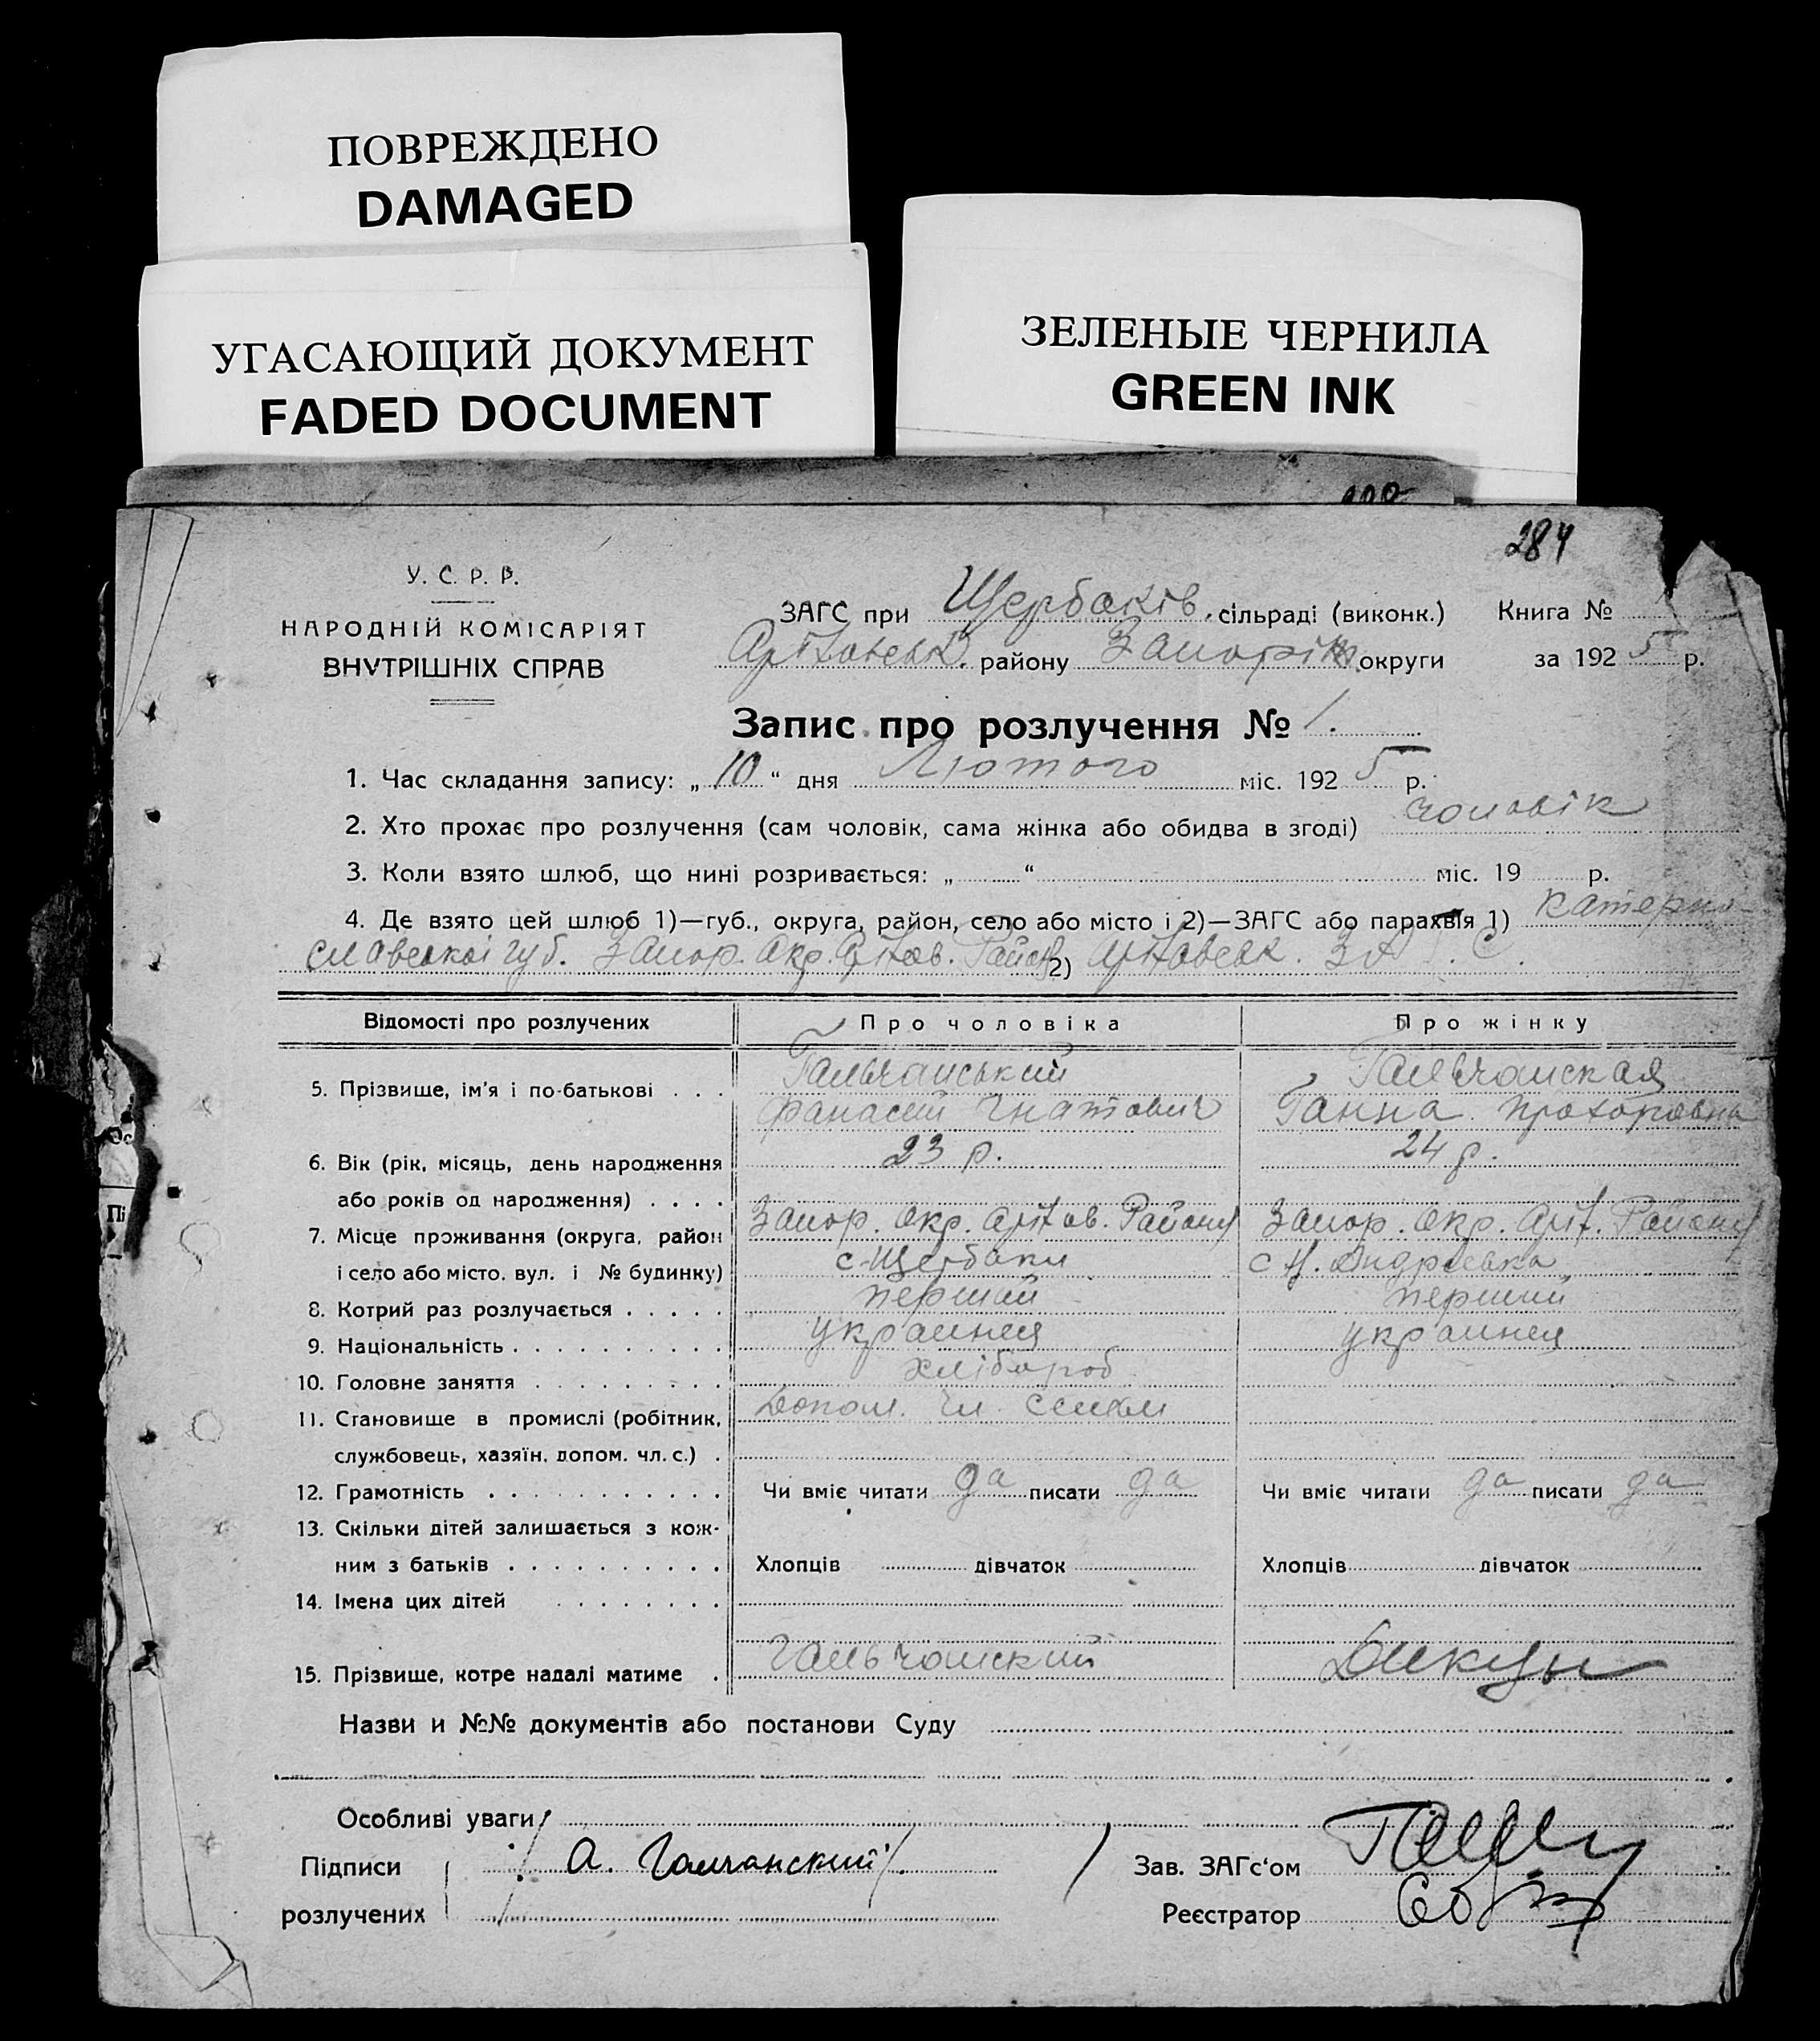 ПОВРЕЖДЕНО
DAMAGED
УГАСАЮЩИЙ ДОКУМЕНТ
FADED DOCUMENT
ЗЕЛЕНЫЕ ЧЕРНИЛА
GREEN INK
284
У. С. Р. Р.
НАРОДНІЙ КОМІСАРІЯТ
ВНУТРІШНІХ СПРАВ
ЗАГС при Щербаків. сільраді (виконк.) Книга №
району Запоріж. округи за 192 5 р.
Запис про розлучення № 1.
1. Час складання запису: „ 10 “ дня Лютого міс. 192 5 р.
2. Хто прохає про розлучення (сам чоловік, сама жінка або обидва в згоді) чоловік
3. Коли взято шлюб, що нині розривається: „ “ міс. 19 р.
4. Де взято цей шлюб 1)—губ., округа, район, село або місто і 2)—ЗАГС або парахвія 1) Катерино-
славської губ. Запор. Окр. 2)
Відомості про розлучених Про чоловіка Про жінку
5. Прізвище, ім'я і по-батькові . . . Гальчанський Гальчанская
Фанасий Гнатович Ганна Прохоровна
6. Вік (рік, місяць, день народження 23 р. 24 р.
або років од народження) . . . .
7. Місце проживання (округа, район Запор. Окр. Району Запор. Окр. Району
і село або місто, вул. і № будинку) с. Щербаки с Н. Андрієвка
8. Котрий раз розлучається . . . . . перший перший
9. Національність . . . . . . . . . . украинец украинец
10. Головне заняття . . . . . . . . . хлібороб
11. Становище в промислі (робітник, Допом. чл. семьи
службовець, хазяїн, допом. чл. с.) .
12. Грамотність . . . . . . . . . . . Чи вміє читати да писати да Чи вміє читати да писати да
13. Скільки дітей залишається з кож-
ним з батьків . . . . . . . . . . Хлопців дівчаток Хлопців дівчаток
14. Імена цих дітей . . . . . . . .
15. Прізвище, котре надалі матиме . Гальчанский Дикун
Назви и №№ документів або постанови Суду
Особливі уваги
Підписи А. Галчанский Зав. ЗАГс'ом
розлучених Реєстратор